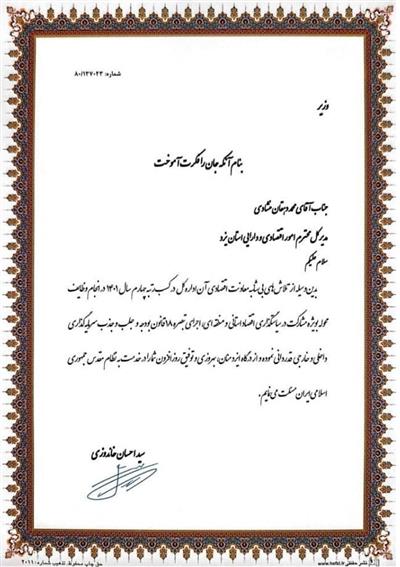 شماره: ۸۰/۱۳۷۰۲۳
وزیر
بنام آنکه جان را فکرت آموخت
جناب آقای محمد دهقان منشادی
مدیر کل محترم امور اقتصادی و دارایی استان یزد
سلام علیکم
بدین وسیله از تلاش های بی شائبه معاونت اقتصادی آن اداره کل در کسب رتبه چهارم سال ۱۴۰۱ در انجام وظایف
محوله بویژه مشارکت در سیاستگذاری اقتصاد استانی و منطقه ای، اجرای تبصره ۱۸ قانون بودجه و جلب و جذب سرمایه گذاری
داخلی و خارجی قدردانی نموده و از درگاه ایزد منان، بهروزی و توفیق روزافزون شما را در خدمت به نظام مقدس جمهوری
اسلامی ایران مسئلت می نمایم.
سید احسان خاندوزی
حق چاپ محفوظ. تذهیب شماره: ۲۰۱۱
www.hafizi.ir